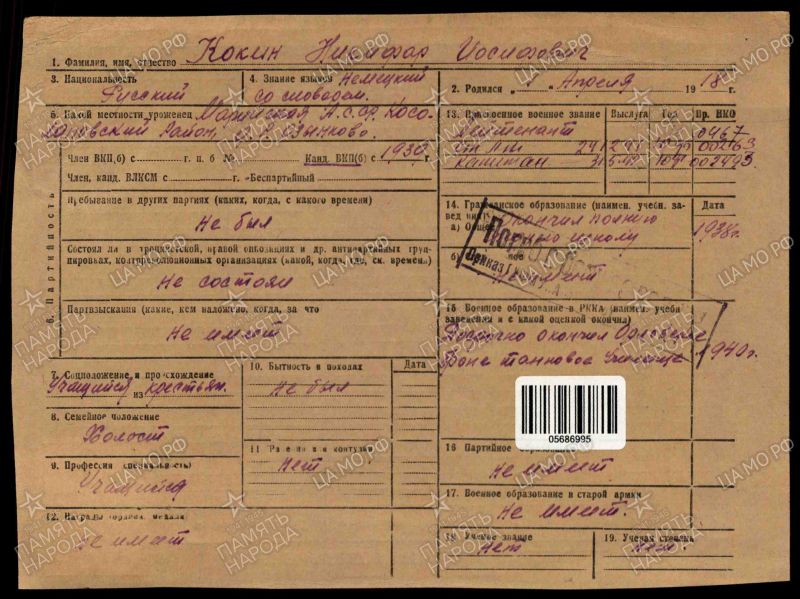 1. Фамилия, имя, отчество Кокин Никифор Иосифович
3. Национальность Русский
4. Знание языков Немецкий со словарем.
2. Родился „ 1 “ Апреля 1918 г.
5. Какой местности уроженец Марийская А.С.С.Р. Косо-
лаповский Район,
Член ВКП(б) с г. п. б №
Канд. ВКП(б) с 1939 г.
Член, канд. ВЛКСМ с г. „Беспартийный“
6. Партийность
Пребывание в других партиях (каких, когда, с какого времени)
Не был
Состоял ли в троцкистской, правой оппозициях и др. антипартийных груп-
пировках, контрреволюционных организациях (какой, когда, где, см. времени)
Не состоял
Партвзыскания (какие, кем наложено, когда, за что
Не имеет
7. Соцположение и происхождение
Учащийся из крестьян.
8. Семейное положение
Холост
9. Профессия (специальность)
Учащийся
12. Награды (ордена, медали)
Не имеет
10. Бытность в походах
Дата
Не был
11. Ранения и контузии
Нет
13. Присвоенное военное звание Выслуга Год Пр. НКО
Лейтенант 0467
Ст. л-т 24 12 41 00263
Капитан 31 5 42 002493
14. Гражданское образование (наимен. учебн. заведения) Дата
а) Общее Окончил полную
среднюю школу 1938г.
б)
Не имеет
15 Военное образование в РККА (наимен. учебн.
заведения и с какой оценкой окончил)
Досрочно окончил Орловское
Бронетанковое Училище 1940г.
05686995
16 Партийное образование
Не имеет
17. Военное образование в старой армии
Не имеет.
18 Ученое звание
Нет
19. Ученая степень
Нет.
ЦАМО.РФ
ПАМЯТЬ
НАРОДА